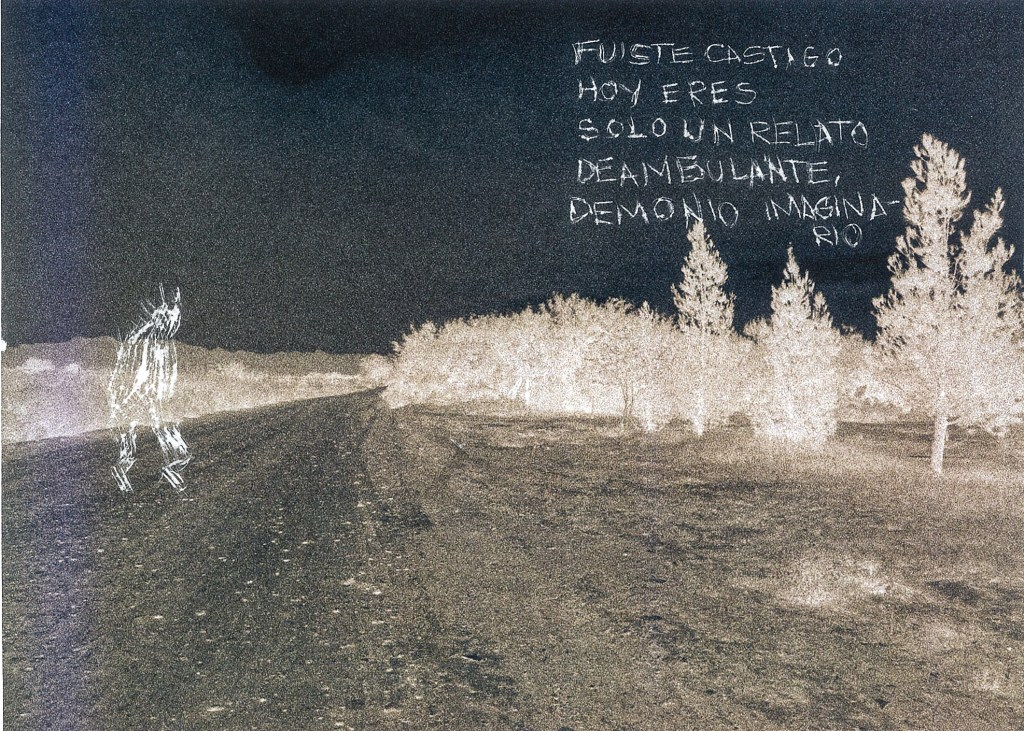 FUISTE CASTIGO
HOY ERES
SOLO UN RELATO
DEAMBULANTE,
DEMONIO IMAGINA-
RIO